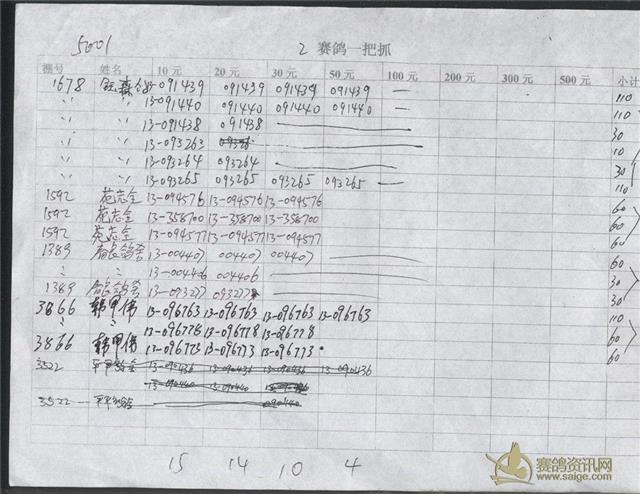 5001
2 赛鸽一把抓
棚号 姓名 10元 20元 30元 50元 100元 200元 300元 500元 小计
1678 13-091439 091439 091439 091439 — 110
〃 〃 13-091440 091440 091440 091440 — 110
〃 〃 13-091438 091438 30
〃 〃 13-093263 10
〃 〃 13-093264 093264 30
〃 〃 13-093265 093265 093265 093265 — 110
1592 苑志全 13-094576 13-094576 13-094576 60
1592 苑志全 13-358700 13-358700 13-358700 60
1592 苑志全 13-094577 13-094577 13-094577 60
1389 13-004407 004407 004407 60
〃 〃 13-004406 004406 30
1389 13-093277 093277 30
3866 韩甲伟 13-096763 13-096763 13-096763 13-096763 110
〃 〃 13-096778 13-096778 13-096778 60
3866 韩甲伟 13-096773 13-096773 13-096773 60
3522 13-090436 13-090436 13-090436 13-090436
13-090440 13-090440
3522 090440
15 14 10 4
赛鸽资讯网
www.saige.com